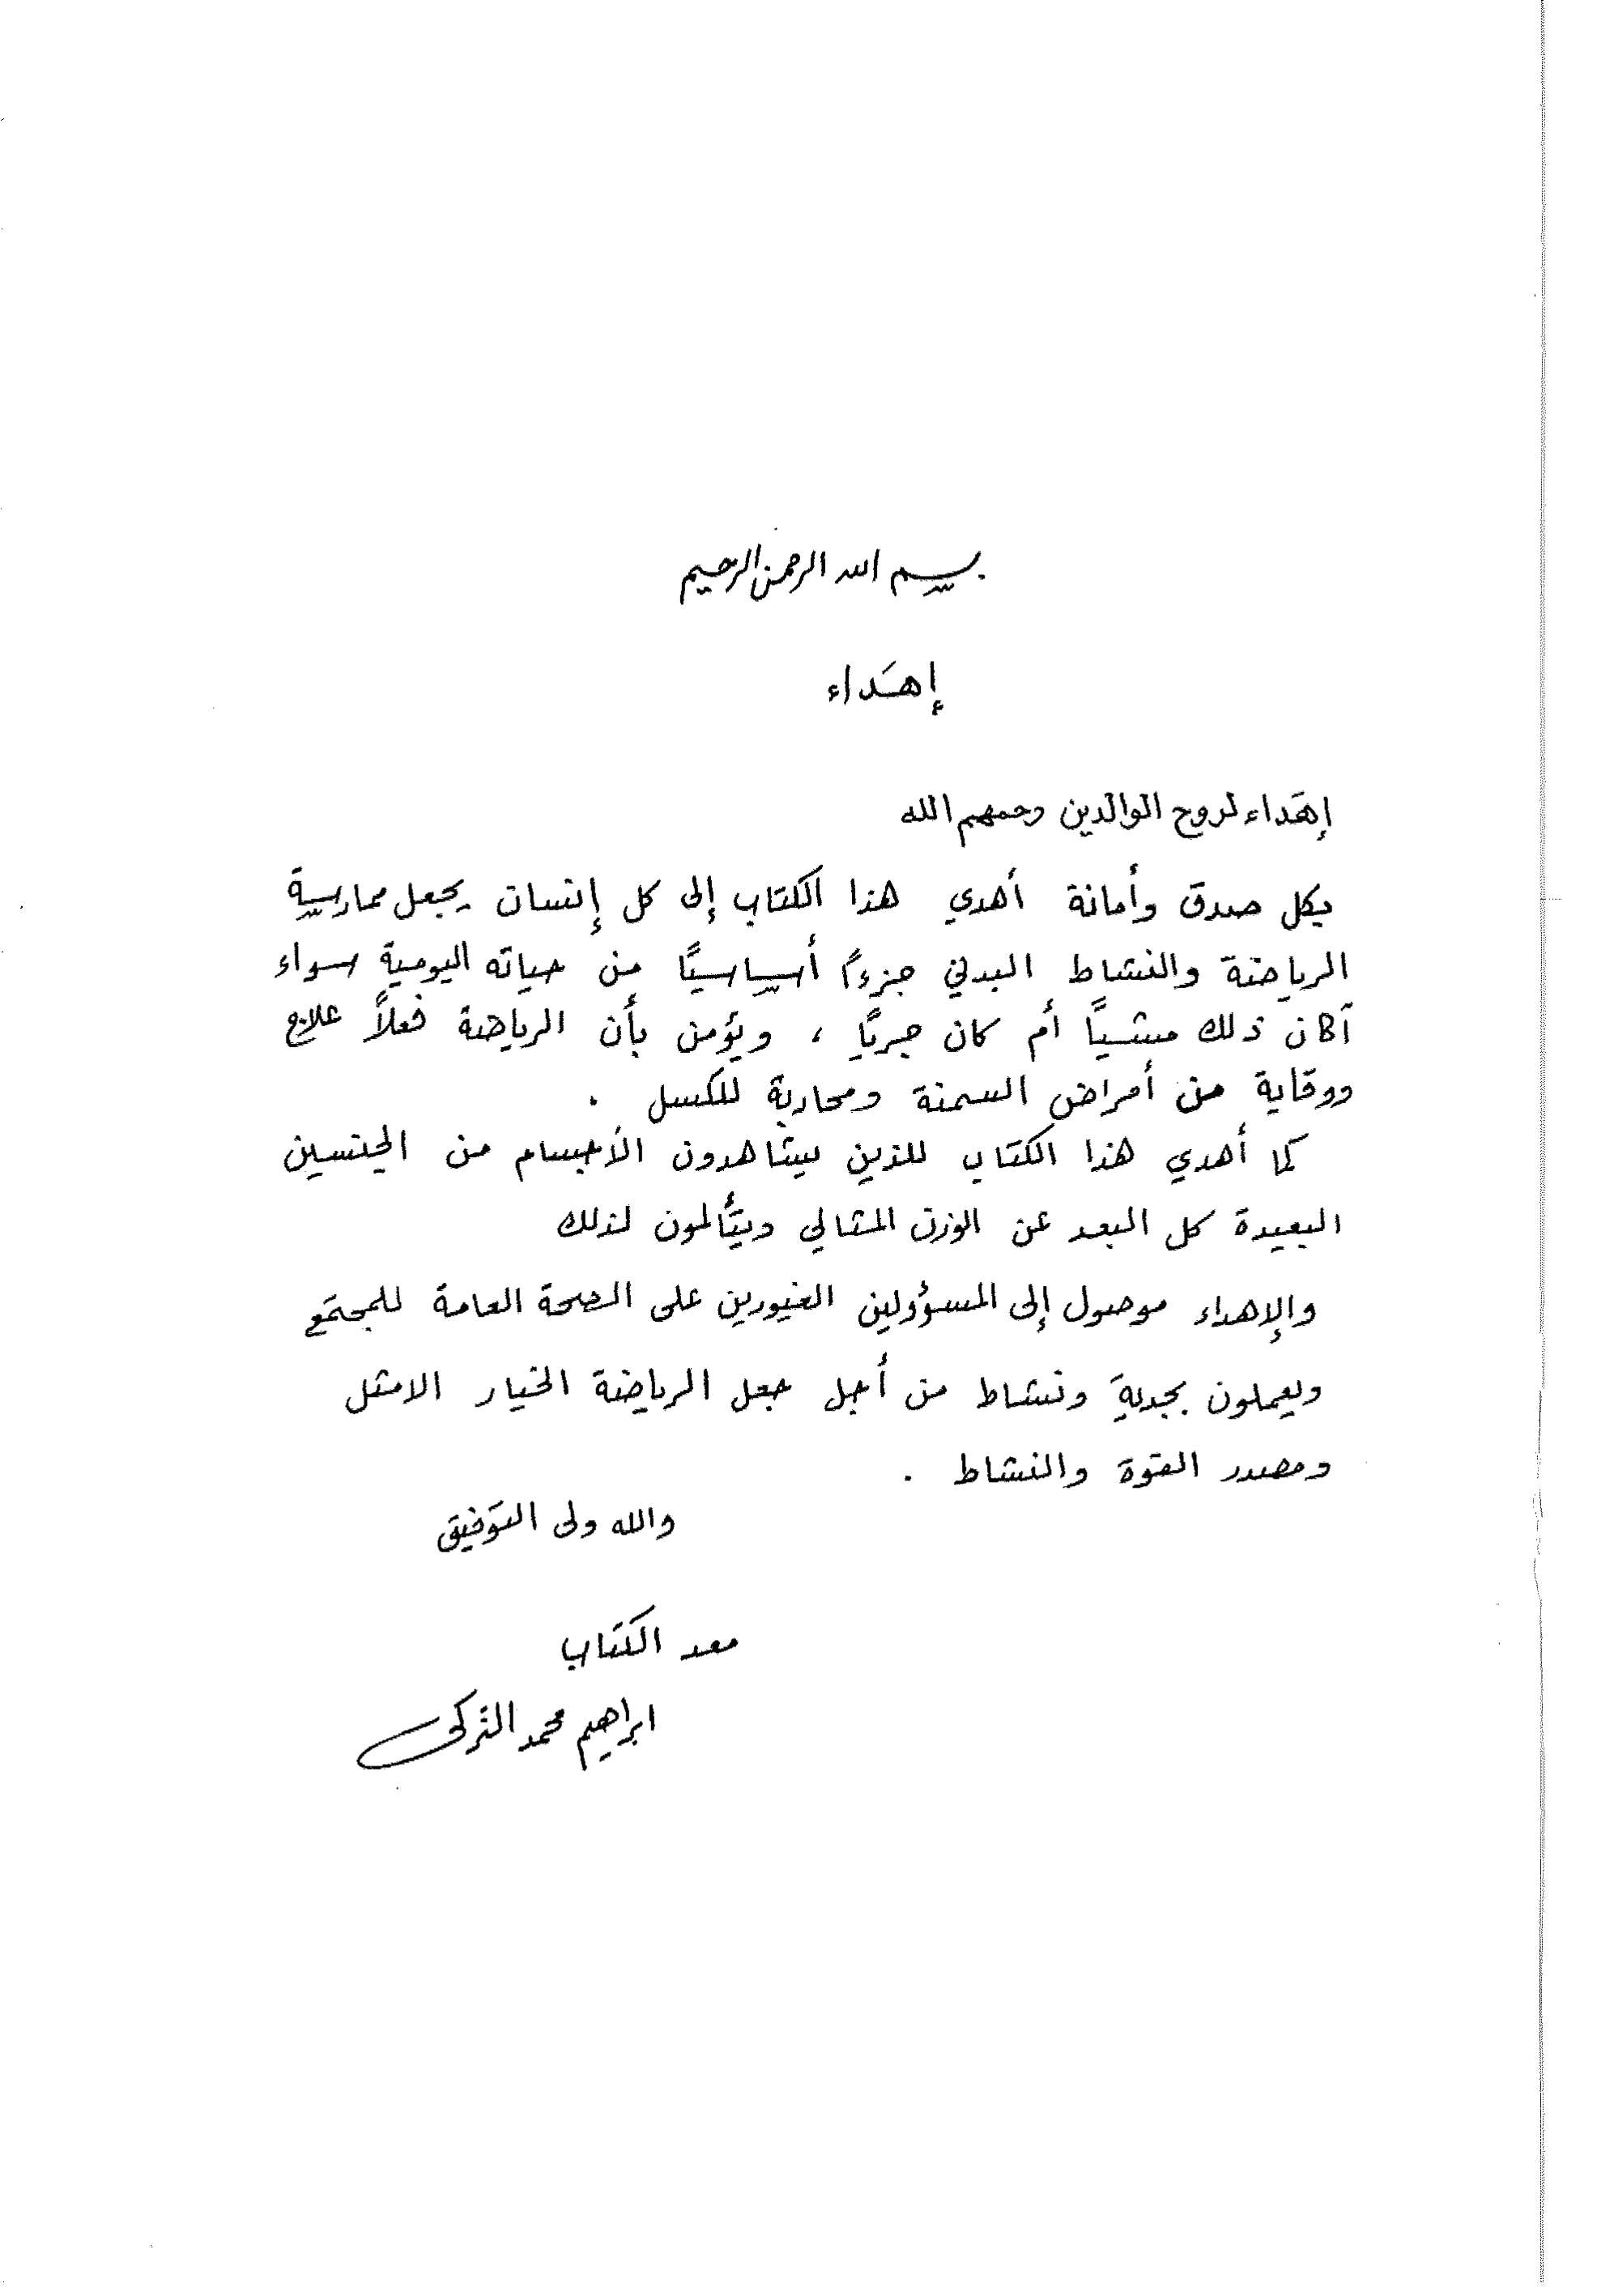 بسم الله الرحمن الرحيم
إهداء
إهداء لروح الوالدين رحمهم الله
بكل صدق وأمانة أهدي هذا الكتاب إلى كل إنسان يجعل ممارسة
الرياضة والنشاط البدني جزءً أساسيًا من حياته اليومية سواء
آكان ذلك مشيًا أم كان جريًا ، ويؤمن بأن الرياضة فعلاً علاج
ووقاية من أمراض السمنة ومحاربة للكسل .
كما أهدي هذا الكتاب للذين يشاهدون الأجسام من الجنسين
البعيدة كل البعد عن الوزن المثالي ويتألمون لذلك
والإهداء موصول إلى المسؤولين الغيورين على الصحة العامة للمجتمع
ويعملون بجدية ونشاط من أجل جعل الرياضة الخيار الامثل
ومصدر القوة والنشاط .
والله ولى التوفيق
معد الكتاب
ابراهيم محمد التركى